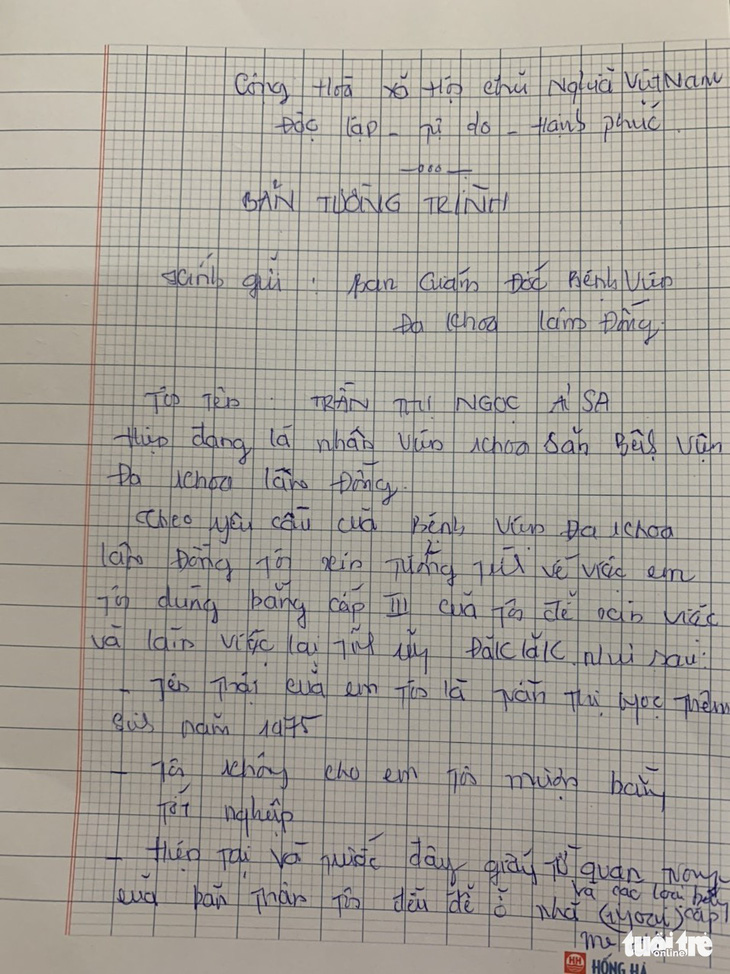 Cộng Hoà Xã Hội Chủ Nghĩa Việt Nam
Độc lập - Tự do - Hạnh phúc
BẢN TƯỜNG TRÌNH
Kính gửi : Ban Giám Đốc Bệnh Viện
Đa Khoa Lâm Đồng.
Tôi tên : TRẦN THỊ NGỌC ÁI SA
Hiện đang là nhân viên khoa Sản Bệnh Viện
Đa khoa Lâm Đồng.
Theo yêu cầu của Bệnh Viện Đa Khoa
Lâm Đồng tôi xin tường trình về việc em
tôi dùng bằng cấp III của tôi để xin việc
và làm việc tại Tỉnh ủy Đăk Lăk như sau:
- Tên thật của em tôi là Trần Thị Ngọc Thêm
sinh năm 1975
- Tôi không cho em tôi mượn bằng
tốt nghiệp
- Hiện tại và trước đây giấy tờ quan trọng
và các loại bằng
của bản thân tôi đều để ở nhà cấp
mẹ
tuổi trẻ
online
HH HỒNG HÀ